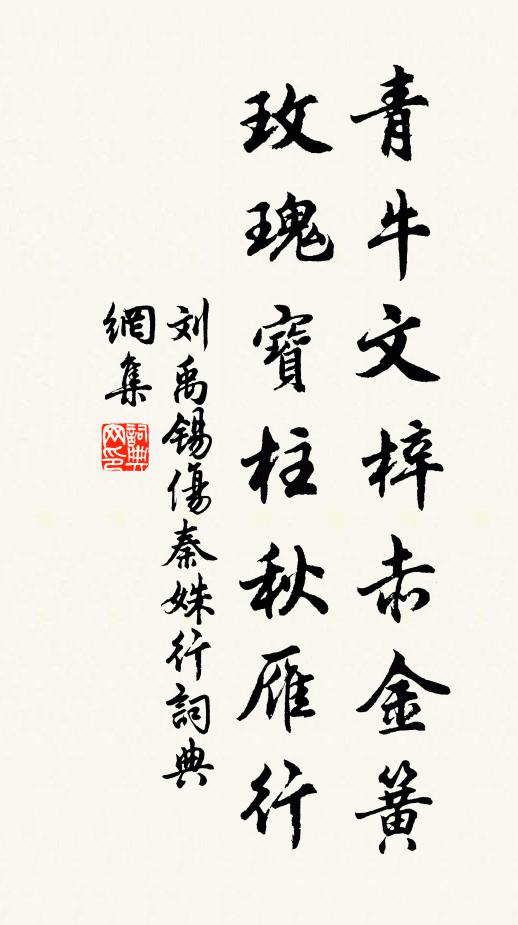 青牛文梓赤金簧
玫瑰寶柱秋雁行
刘禹锡傷秦姝行詞典
網集
詞典網印